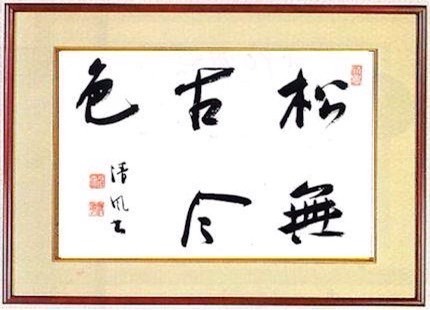 松無
古今
色
清風書